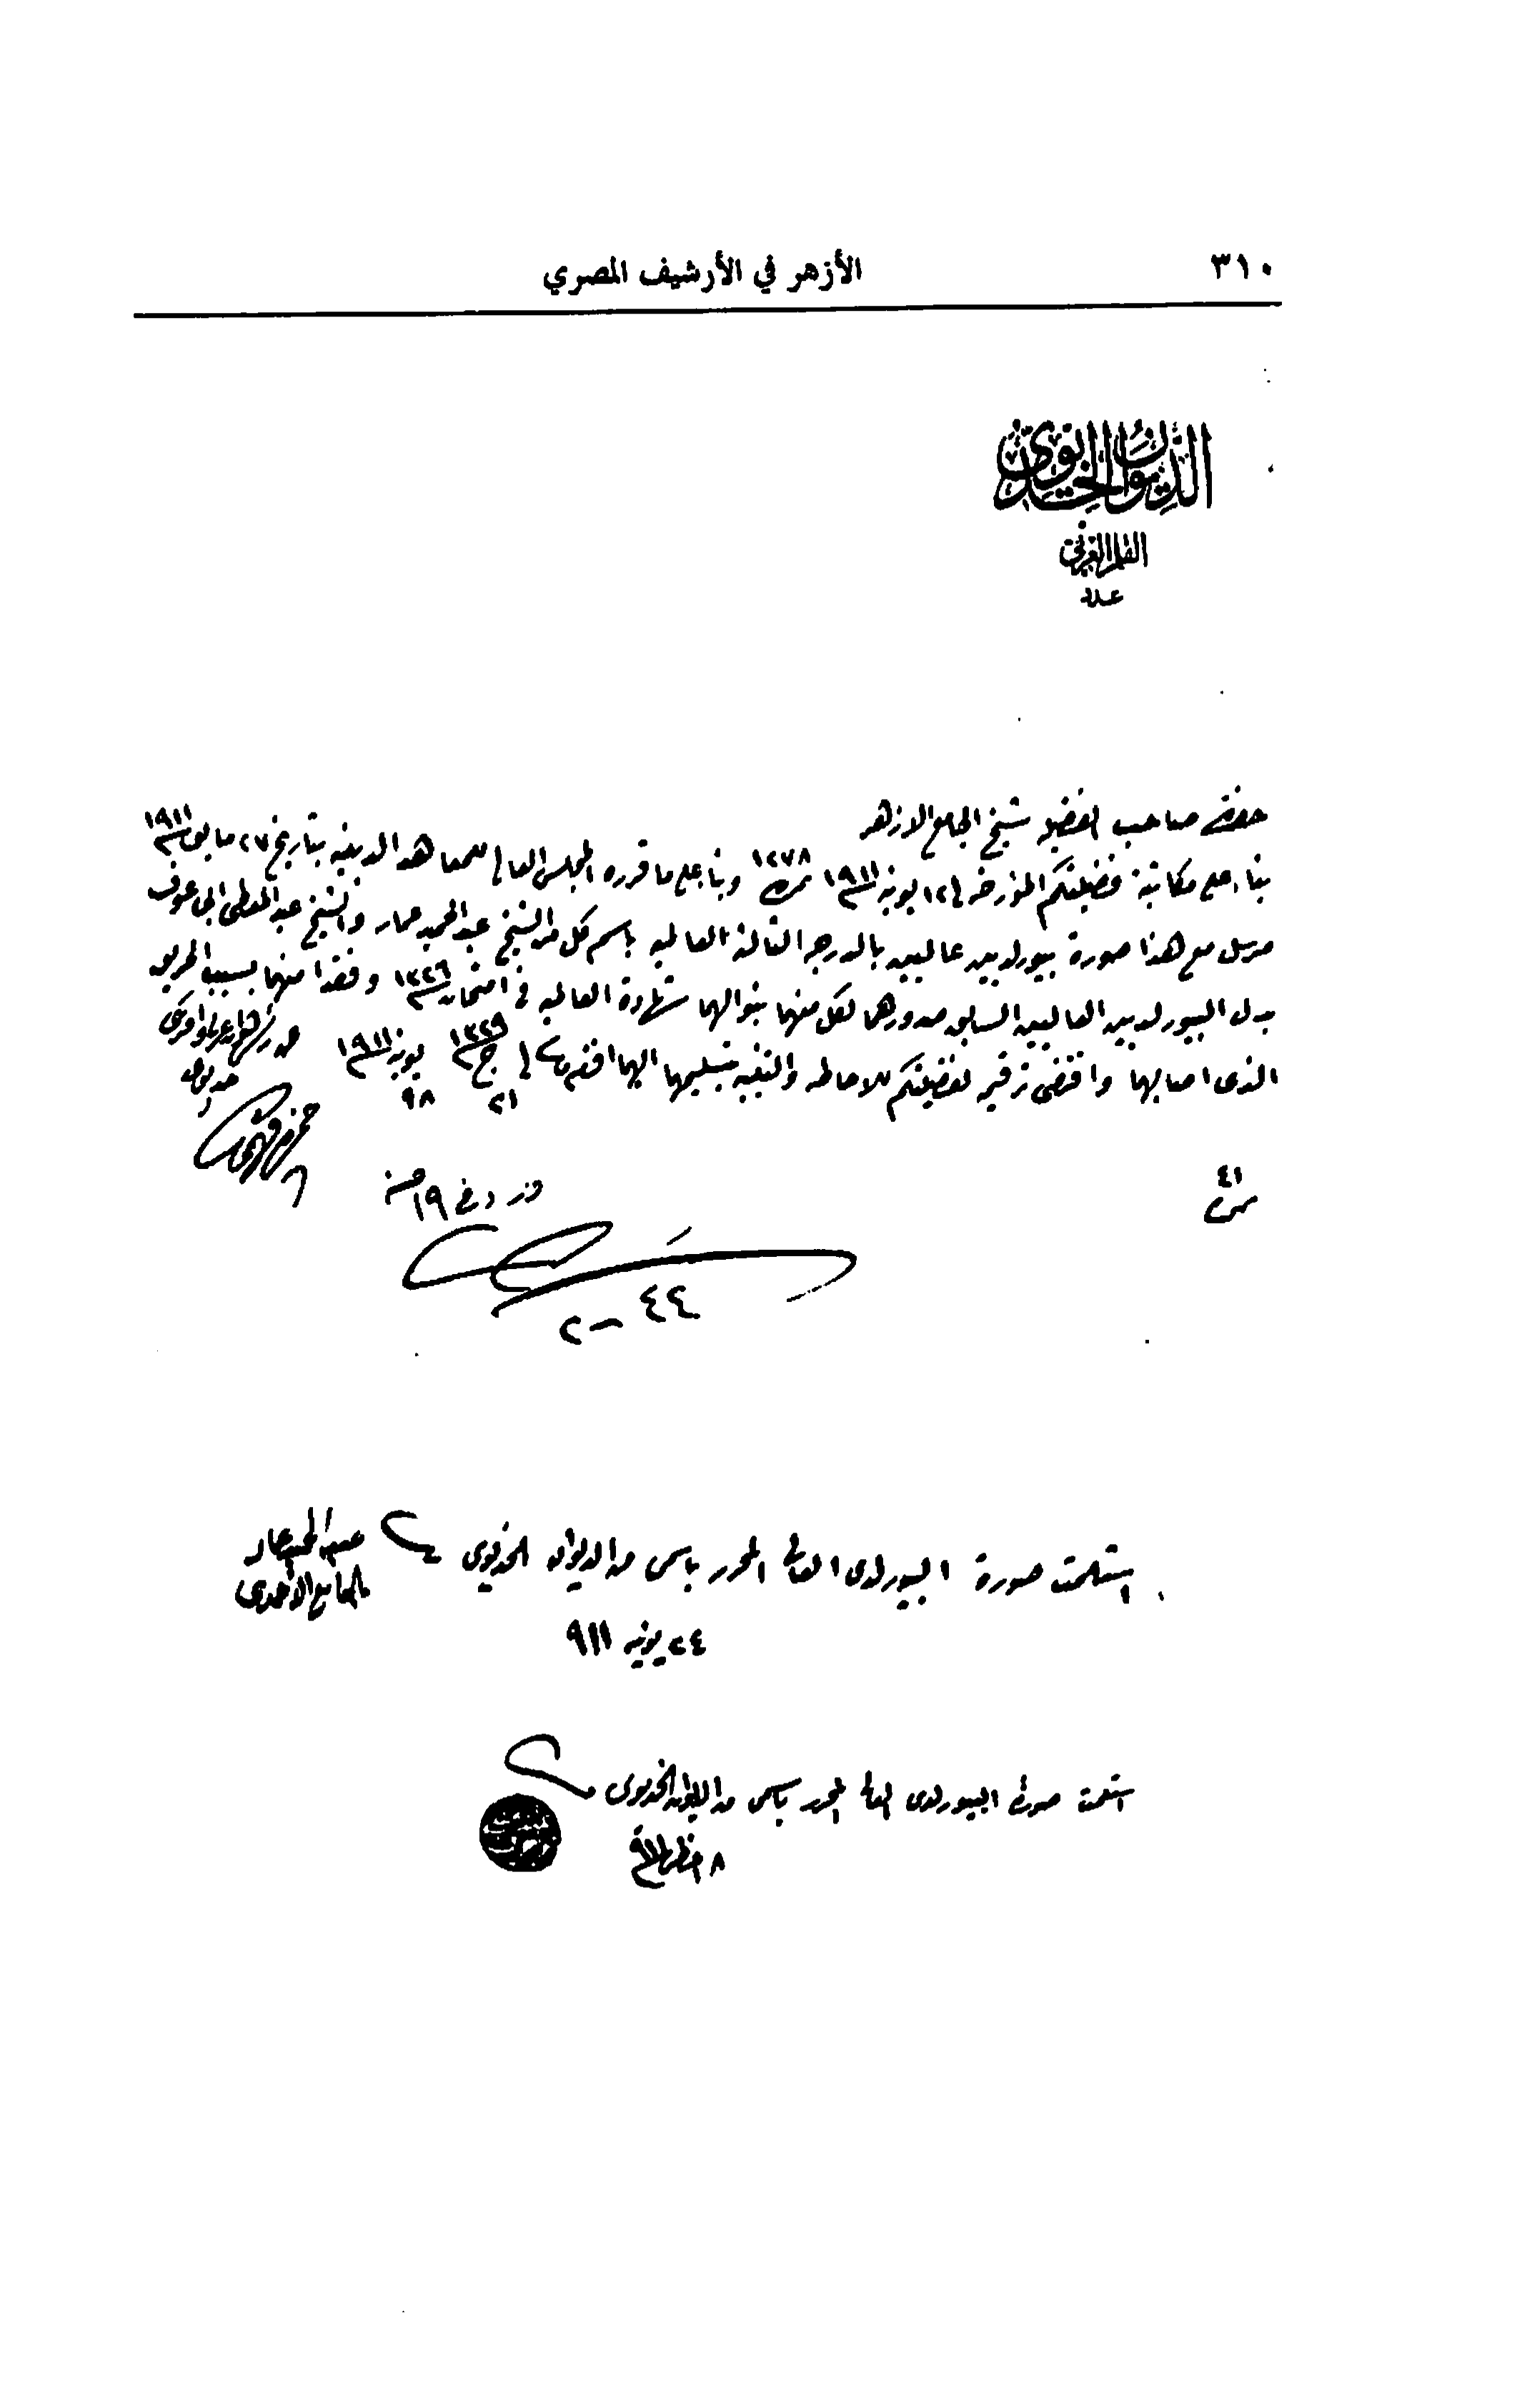 ٣١٠
الأزهر في الأرشيف المصري
الديوان الخديوى
القلم العربى
عدد
حضرة صاحب الفضيلة شيخ الجامع الازهر
بناء على مكاتبة فضيلتكم المؤرخة فى ١٢ يونيه ١٩١١ نمرة ١٢٧٨ وبنا على ما قرره المجلس العالى للمعاهد الدينيه بتاريخ ٢٧ مايو ١٩١١
مرسل مع هذا صورة بيورلديين عاليين بالدرجة الثالثة العالميه باسم كل من الشيخ عبد الحميد عمار والشيخ عبد المعطى
بدل البيورلديين العاليين السابق صدورهما لكل منهما بنوالهما شهادة العالميه فى امتحان ١٣٢٦ وفقدا منهما بسبب الحريق
الذى اصابهما واقتضى ترقيمه لفضيلتكم للاحاطه والتنبيه بتسليمهما اليهما افندم فى ٢١ ج ١٣٢٩ ١٨ يونيه ١٩١١
خديوى
٤١
س
١٩
٤٤
٢
استلمت صورة البيورلدى العالى المحرر باسمى من الديوان الخديوى
عبد الحميد عمار
بالجامع الاحمدى
٢٤ يونيه ٩١١
استلمت صورة البيورلدى العالى المحرر باسمى من الديوان الخديوى